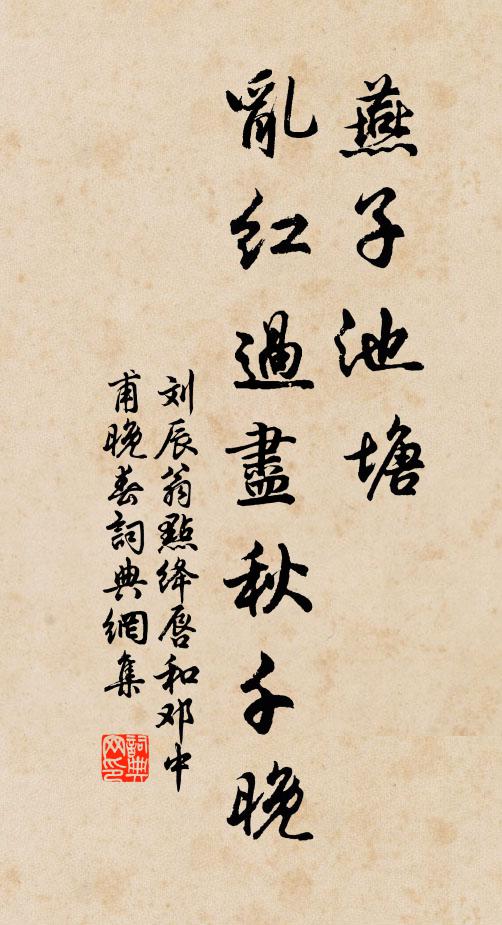 燕子池塘
亂红過盡秋千晚
刘辰翁點绛唇和邓中
甫晚春詞典網集
詞典网印